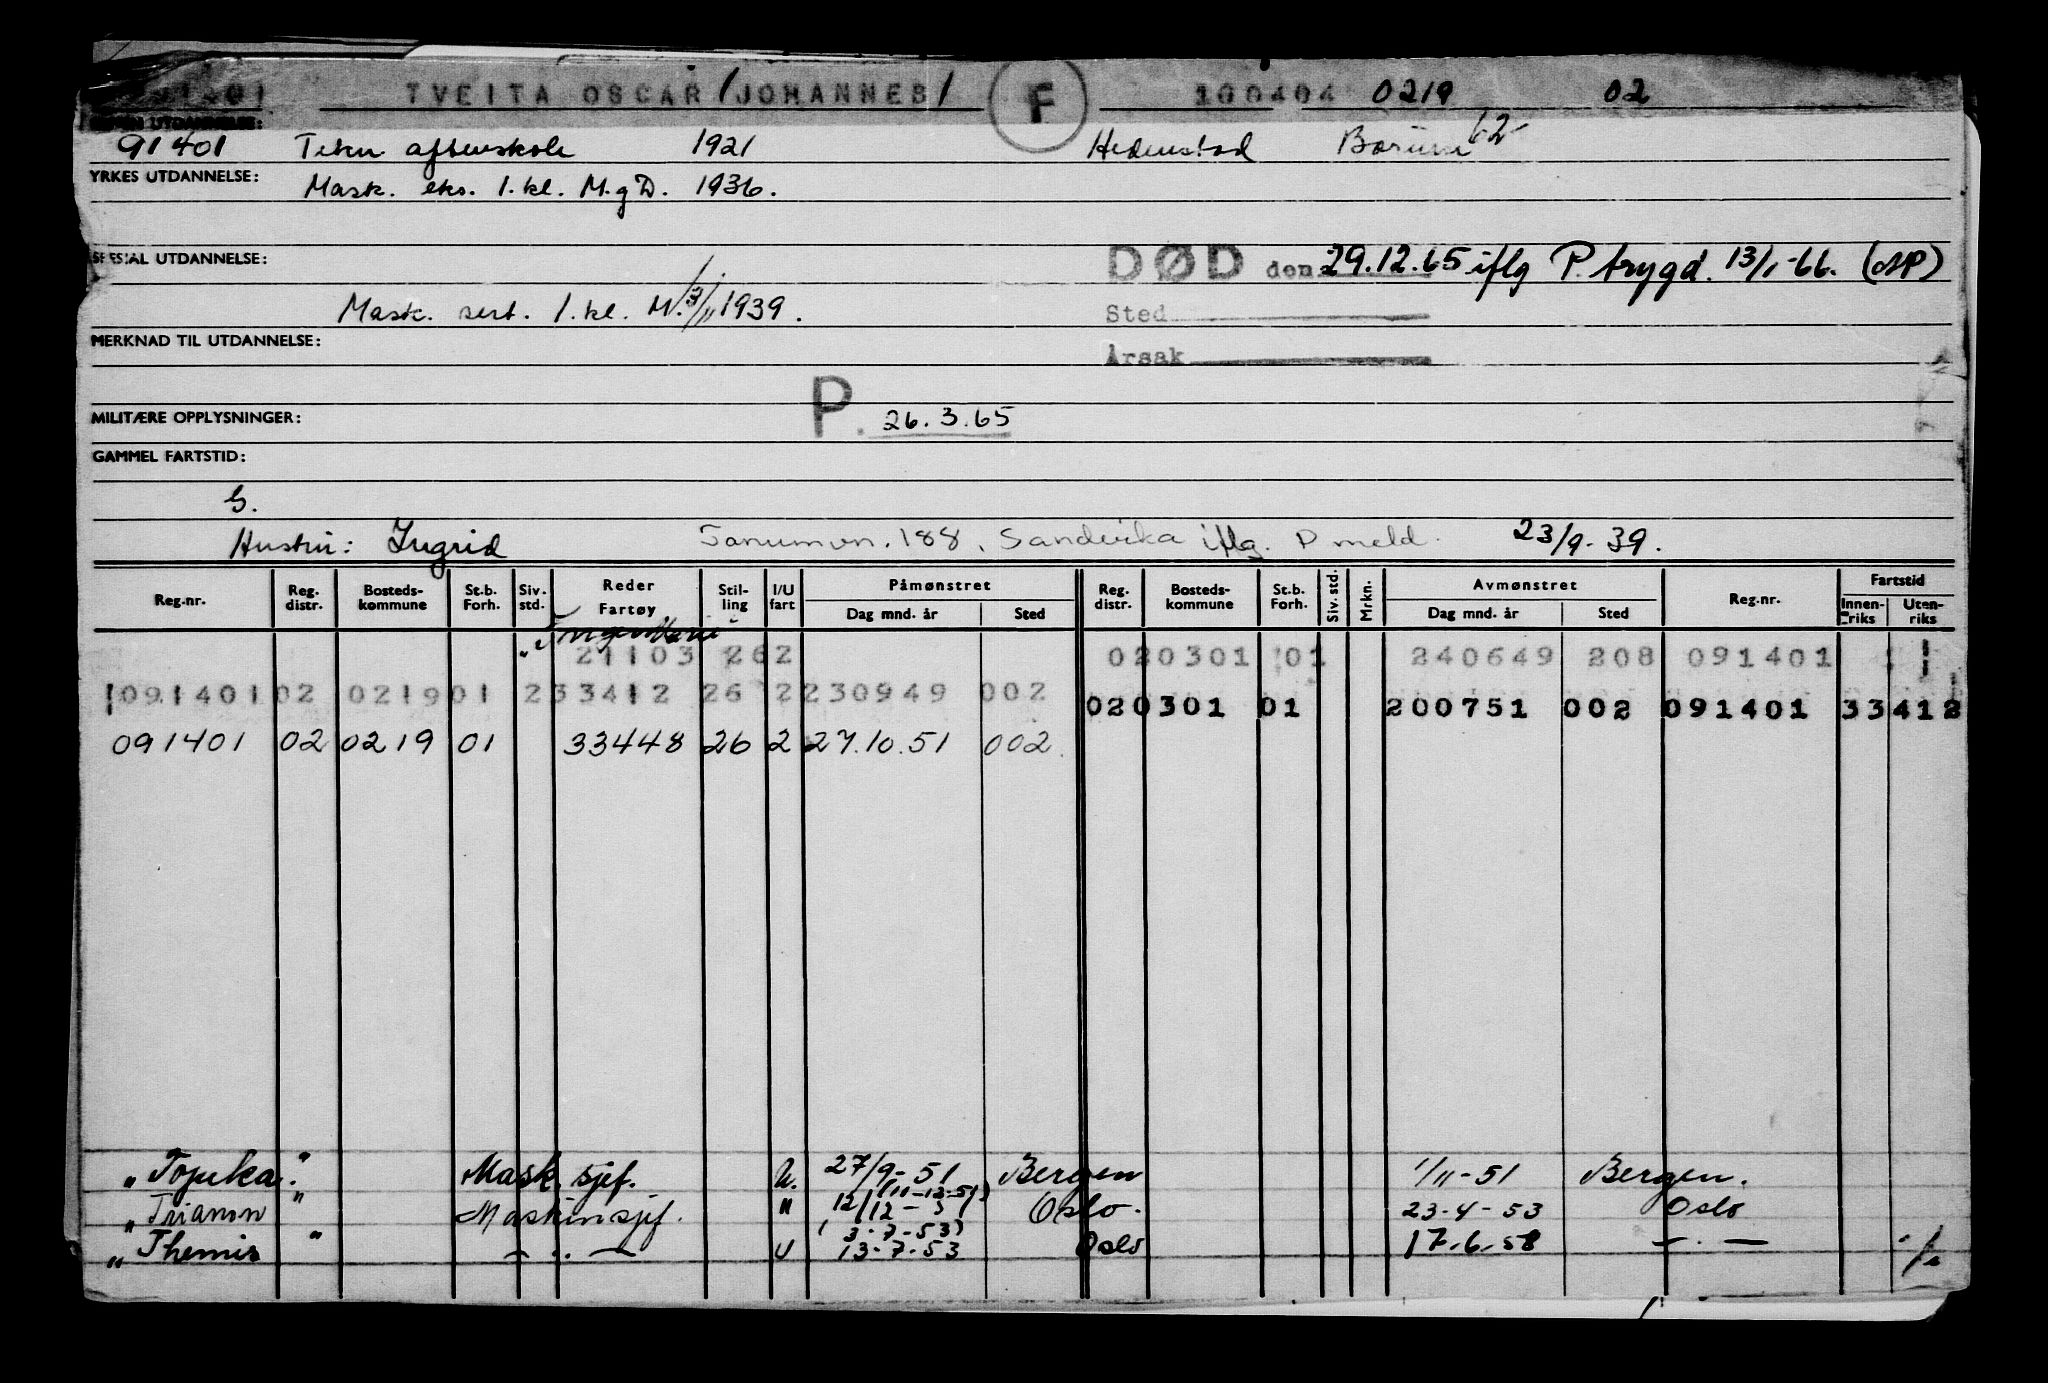 TVEITA OSCAR /JOHANNES/ F 100404 0219 02
91401 Tekn aftenskole 1921 Hedenstad Bærum 62
YRKES UTDANNELSE: Mask. eks. 1. kl. M.g D. 1936.
SPESIAL UTDANNELSE: DØD den 29.12.65 iflg P. trygd. 13/1-66. (AP)
Mask. sert. 1. kl. M. 3/11 1939. Sted
MERKNAD TIL UTDANNELSE: Årsak
MILITÆRE OPPLYSNINGER: P. 26.3.65
GAMMEL FARTSTID:
G.
Hustru: Ingrid Tanumvn. 188, Sandvika iflg. P meld. 23/9-39.
Reg.nr. Reg. distr. Bosteds-kommune St.b. Forh. Siv. std. Reder Fartøy Stil-ling I/U fart Påmønstret Dag mnd. år Sted Reg. distr. Bosteds-kommune St.b. Forh. Siv. std. Mrkn. Avmønstret Dag mnd. år Sted Reg.nr. Fartstid Innen-riks Uten-riks
21103 26 2 02 0301 01 240649 208 091401
091401 02 0219 01 2 33412 26 2 230949 002
02 0301 01 200751 002 091401 33412
091401 02 0219 01 33448 26 2 27.10.51 002
"Topeka" Mask.sjef. U. 27/9-51 Bergen 1/11-51 Bergen.
(11-12-51)
"Trianon" Maskinsjef. " 12/12-51 Oslo. 23-4-53 Oslo
(3-7-53)
"Themis" — " — U 13-7-53 Oslo 17-6-58 — " —